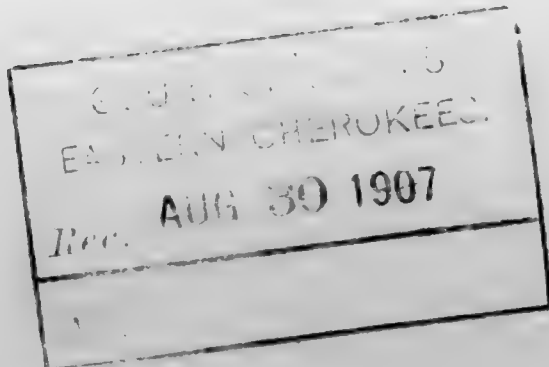 EASTERN CHEROKEES.
Rec. AUG 30 1907